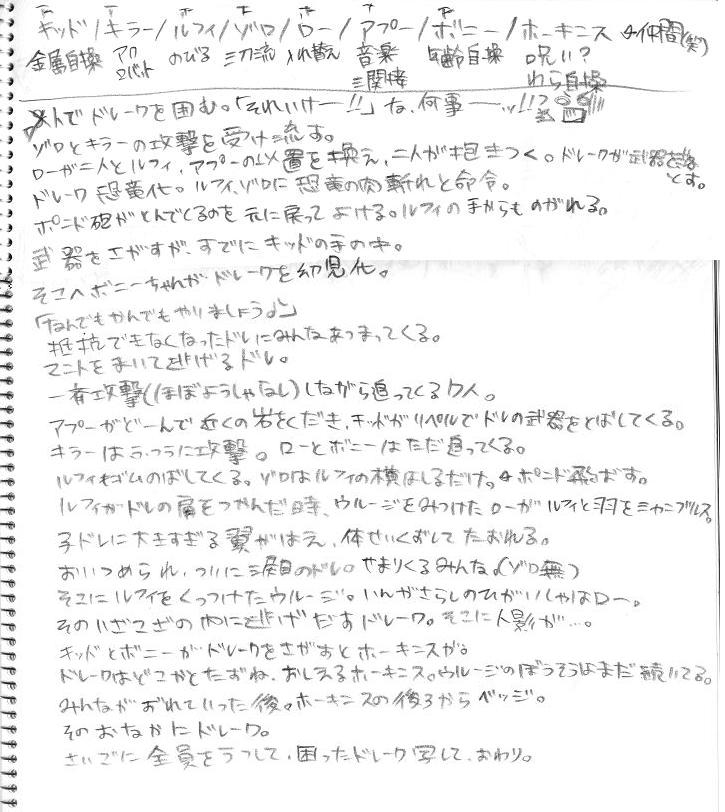 キッド/キラー/ルフィ/ゾロ/ロー/アプー/ボニー/ホーキンス 仲間(笑)
金属自操 アクロバット のびる 三刀流 入れ替え 音楽 三関接 年齢自操 呪い? わら自操
人でドレークを囲む。「それいけー!!」な、何事ーッ!!?
ゾロとキラーの攻撃を受け流す。
ローが二人とルフィ、アプーの位置を換え、二人が抱きつく。ドレークが武器を落とす。
ドレーク恐竜化。ルフィ、ゾロに恐竜の肉斬れと命令。
ポンド砲がとんでくるのを元に戻ってよける。ルフィの手からものがれる。
武器をさがすが、すでにキッドの手の中。
そこへボニーちゃんがドレークを幼児化。
「なんでもかんでもやりましょう♪」
抵抗できなくなったドレにみんなあつまってくる。
マントをまいて逃げるドレ。
一斉攻撃(ほぼようしゃなし)しながら追ってくる7人。
アプーがどーんで近くの岩をくだき、キッドがリペルでドレの武器をとばしてくる。
キラーはふつうに攻撃。ローとボニーはただ追ってくる。
ルフィもゴムのばしてくる。ゾロはルフィの横はしるだけ。ポンド飛ばす。
ルフィがドレの肩をつかんだ時、ウルージをみつけたローがルフィと羽をミカニブルズ。
子ドレに大きすぎる翼がはえ、体せいくずしてたおれる。
おいつめられ、ついに涙目のドレ。せまりくるみんな。(ゾロ無)
そこにルフィをくっつけたウルージ。いんがさらしのひがいしゃはロー。
そのいざこざの内に逃げだすドレーク。そこに人影が…。
キッドとボニーがドレークをさがすとホーキンスが。
ドレークはどこかとたずね、おしえるホーキンス。ウルージのぼうそうはまだ続いてる。
みんながおれていった後。ホーキンスの後ろからベッジ。
そのおなかにドレーク。
さいごに全員をうつして、困ったドレーク写して、おわり。